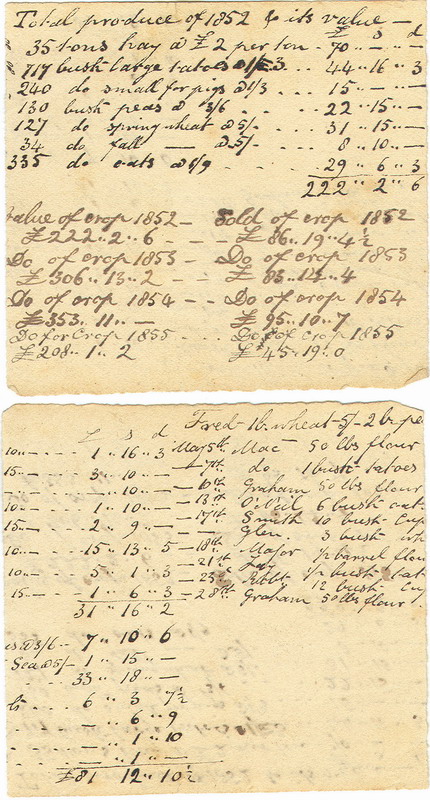 Total produce of 1852 & its value —
£ s d
35 tons hay @ £2 per ton - 70 " — " —
717 bush large tatoes @ 1/3 44 " 16 " 3
240 do small for pigs @ 1/3 15 " — " —
130 bush peas @ 3/6 - - 22 " 15 " —
127 do spring wheat @ 5/- 31 " 15 " —
34 do fall — @ 5/- 8 " 10 " —
335 do oats @ 1/9 29 " 6 " 3
222 " 2 " 6
Value of crop 1852 — Sold of crop 1852
£222 " 2 " 6 - - - £86 " 19 " 4½
Do of crop 1853 - Do of crop 1853
£306 " 13 " 2 - - £83 " " 4
Do of crop 1854 — Do of crop 1854
£353 " 11 " — £95 " 10 " 7
Do for Crop 1855 Do of crop 1855
£208 " 1 " 2 £45 " 19 " 0
Fred 1 b. wheat 5/- 2 b. pe
£ s d
10 — 1 " 16 " 3 May 5th Mac 50 lbs flour
15 — 3 " 10 " — 7th do 1 bush tatoes
— " 10 " — 10th Graham 50 lbs flour
10 — 1 " 10 " — 13th O'Neil 6 bush oat
15 — 2 " 9 " — 17th Smith 10 bush Cup
Glen 3 bush wh
10 — 15 " 13 " 5 - 18th Major ½ barrel flou
21st Jay
10 — 5 " 1 " 3 Robt ½ bush tat
12 bush Cup
15 — 1 " 6 " 3 - 28th Graham 50 lbs flour
31 " 16 " 2
@ 3/6 - 7 " 10 " 6
@ 5/- 1 " 15 " —
33 " 18 " —
6 " 3 " 7½
— " 6 " 9
— " 1 " 10
— " 1 " —
£81 12 " 10½